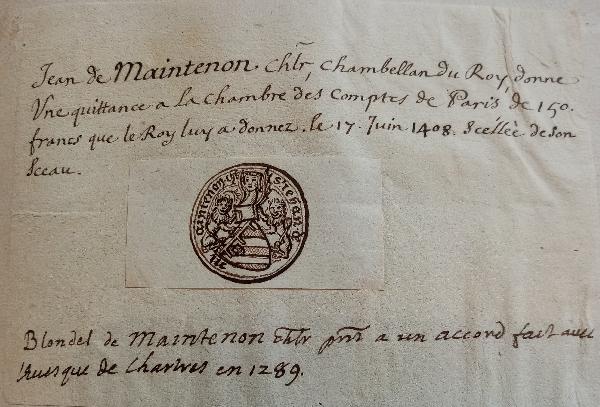 Jean de Maintenon chlr, chambellan du Roy, donne
Une quittance a La chambre des Comptes de Paris, de 150.
francs que le Roy luy a donnez. le 17. Juin 1408. Scellée de son
Sceau.
Blondel de Maintenon chlr pnt a un accord fait avec
l'euesque de Chartres en 1289.